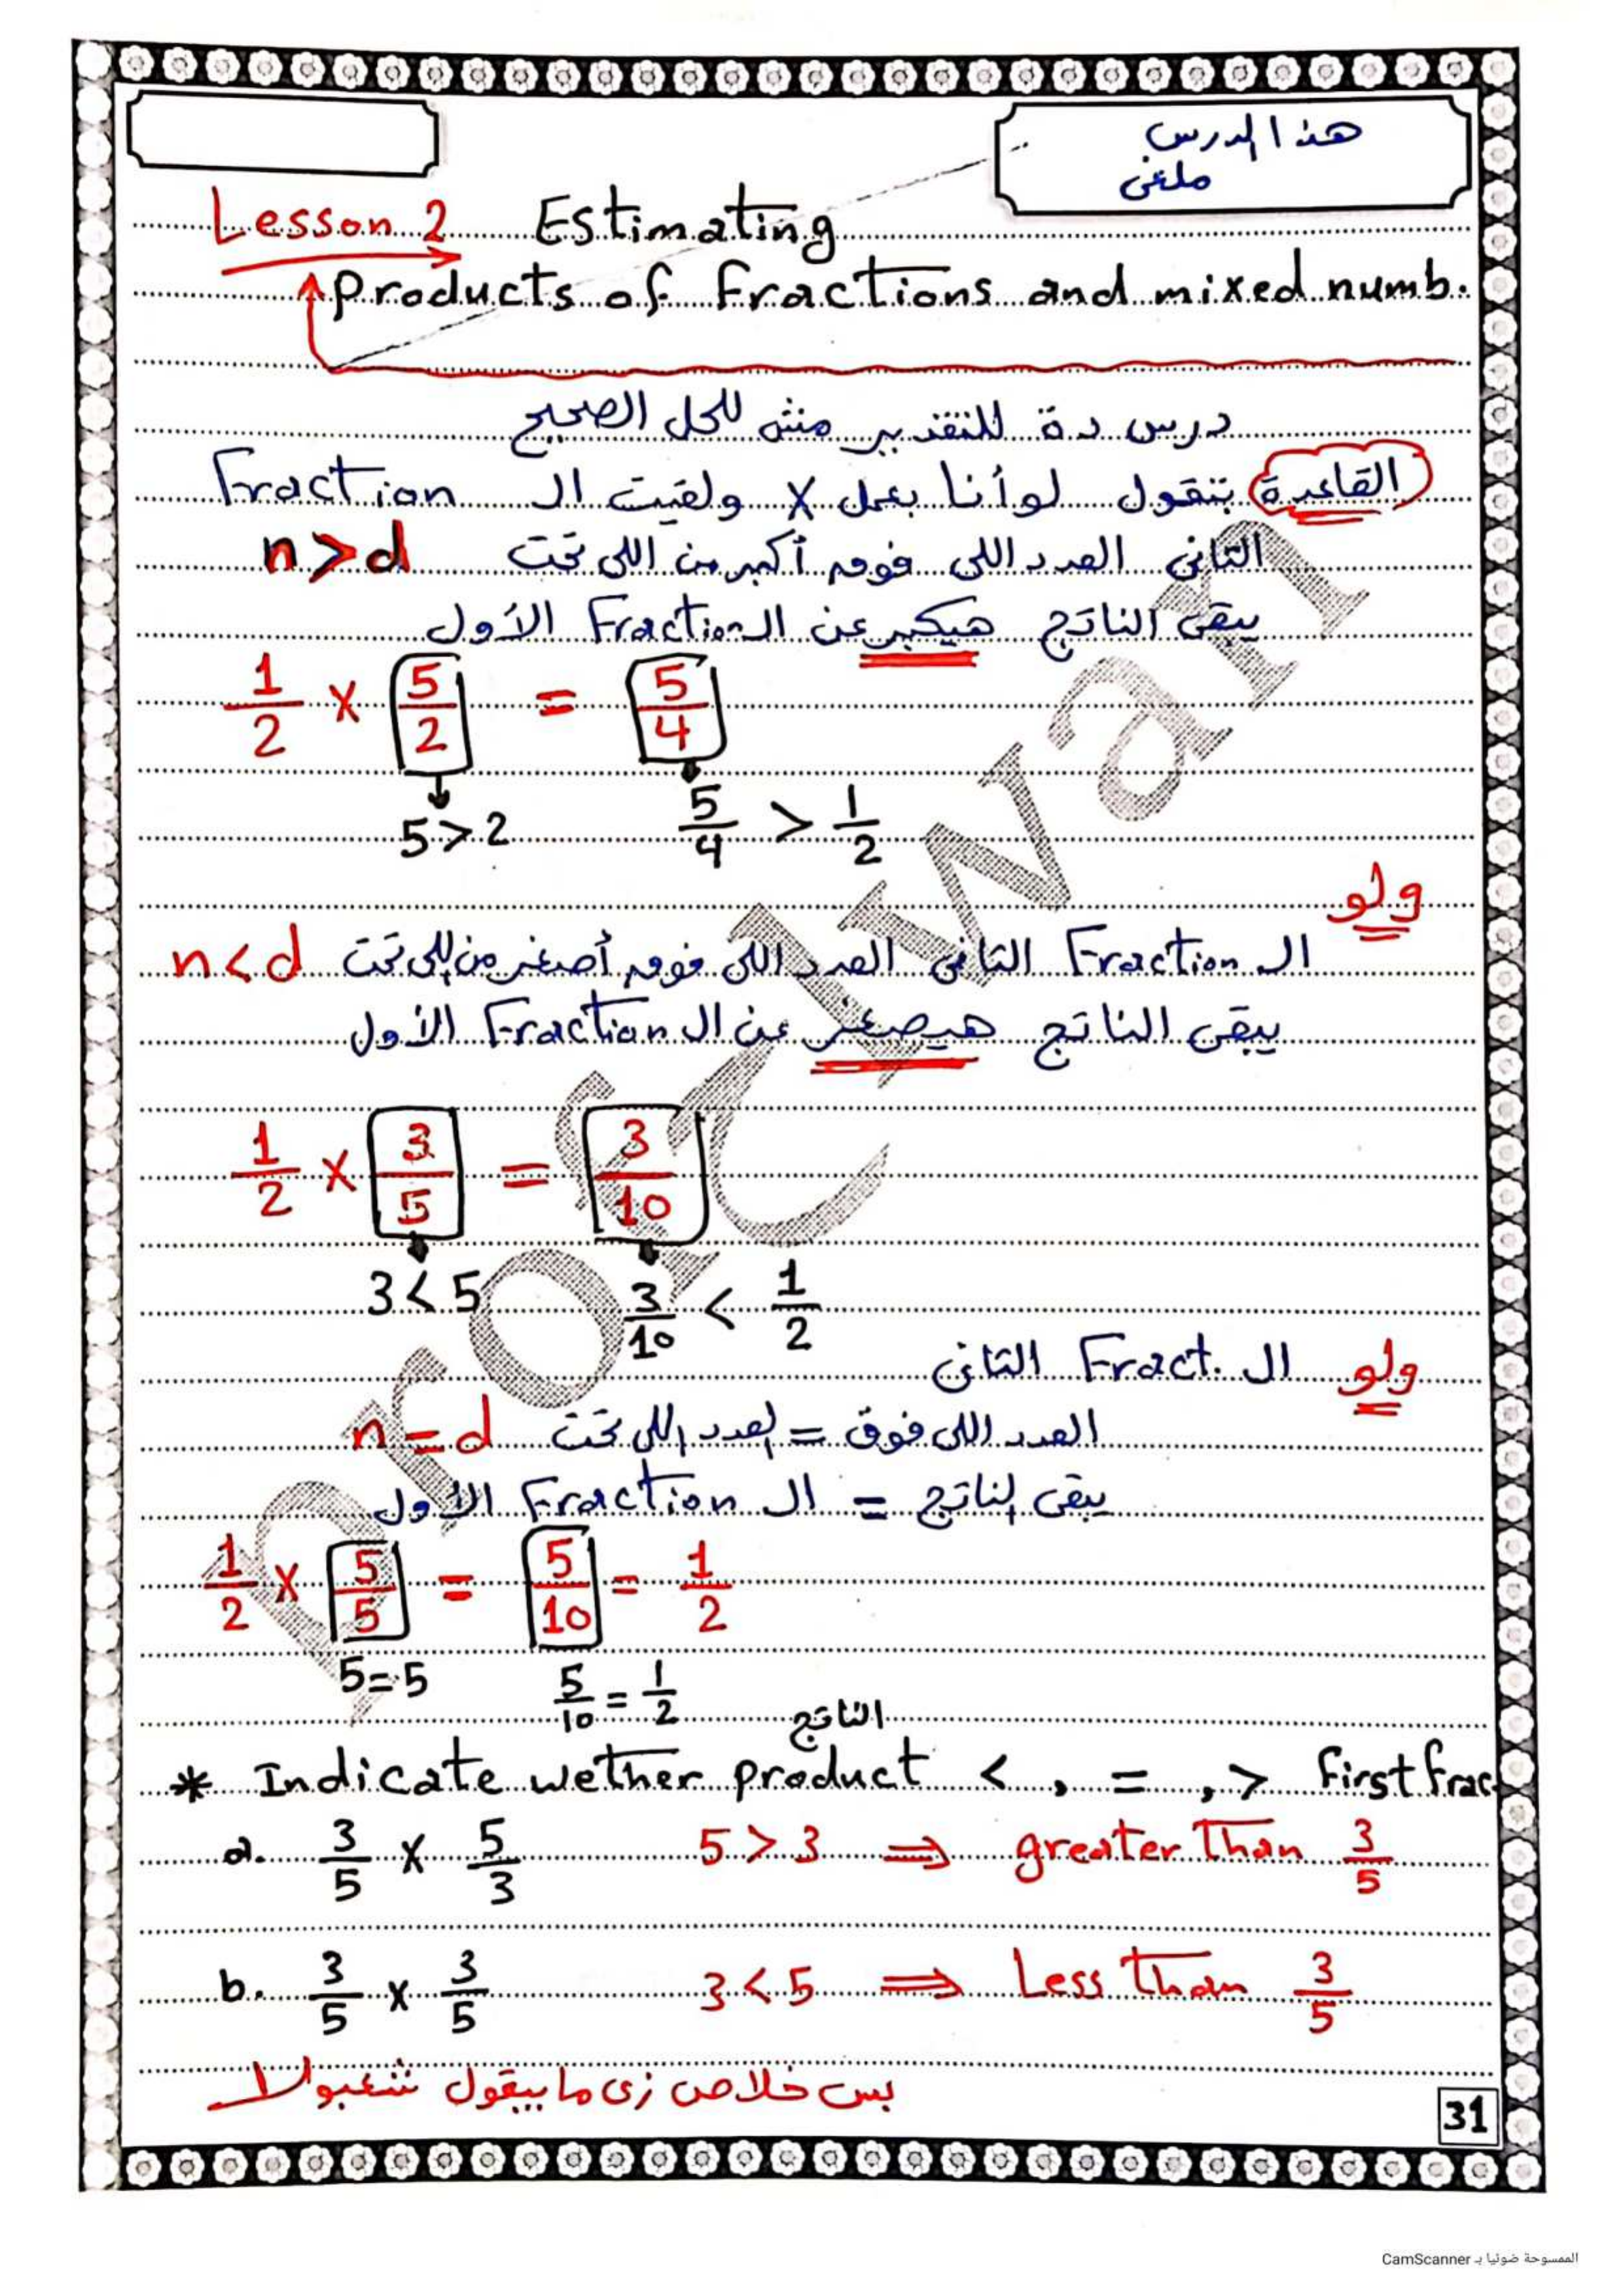 هذا الدرس
ملغى
Lesson 2 Estimating
Products of Fractions and mixed numb.
درس دة للتقدير مش للحل الصحيح
القاعدة بتقول لو أنا بعمل x ولقيت ال Fraction
التانى العدد اللى فوق أكبر من اللى تحت n>d
يبقى الناتج هيكبر عن ال Fraction الأول
1/2 x 5/2 = 5/4
5>2 5/4 > 1/2
ولو
ال Fraction التانى العدد اللى فوق أصغر من اللى تحت n<d
يبقى الناتج هيصغر عن ال Fraction الأول
1/2 x 3/5 = 3/10
3<5 3/10 < 1/2
ولو ال Fract. التانى
العدد اللى فوق = العدد اللى تحت n=d
يبقى الناتج = ال Fraction الأول
1/2 x 5/5 = 5/10 = 1/2
5=5 5/10 = 1/2
الناتج
* Indicate wether product < , = , > First frac
a. 3/5 x 5/3 5>3 ⇒ greater than 3/5
b. 3/5 x 3/5 3<5 ⇒ Less than 3/5
بس خلاص زى ما بيقول شعبولا
31
الممسوحة ضوئيا بـ CamScanner